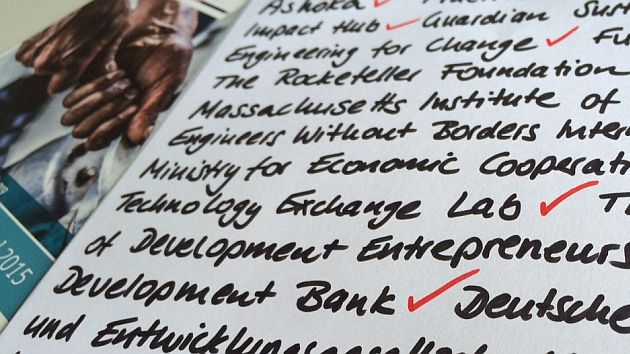 Ashoka ✓
Impact Hub ✓ Guardian Sust
Engineering for Change ✓ Fu
The Rockefeller Foundation
Massachusetts Institute of
Engineers Without Borders Inter
Ministry for Economic Cooperati
Technology Exchange Lab ✓ T
of Development Entrepreneurs
Development Bank ✓ Deutsche
und Entwicklungsgesellsch
2015